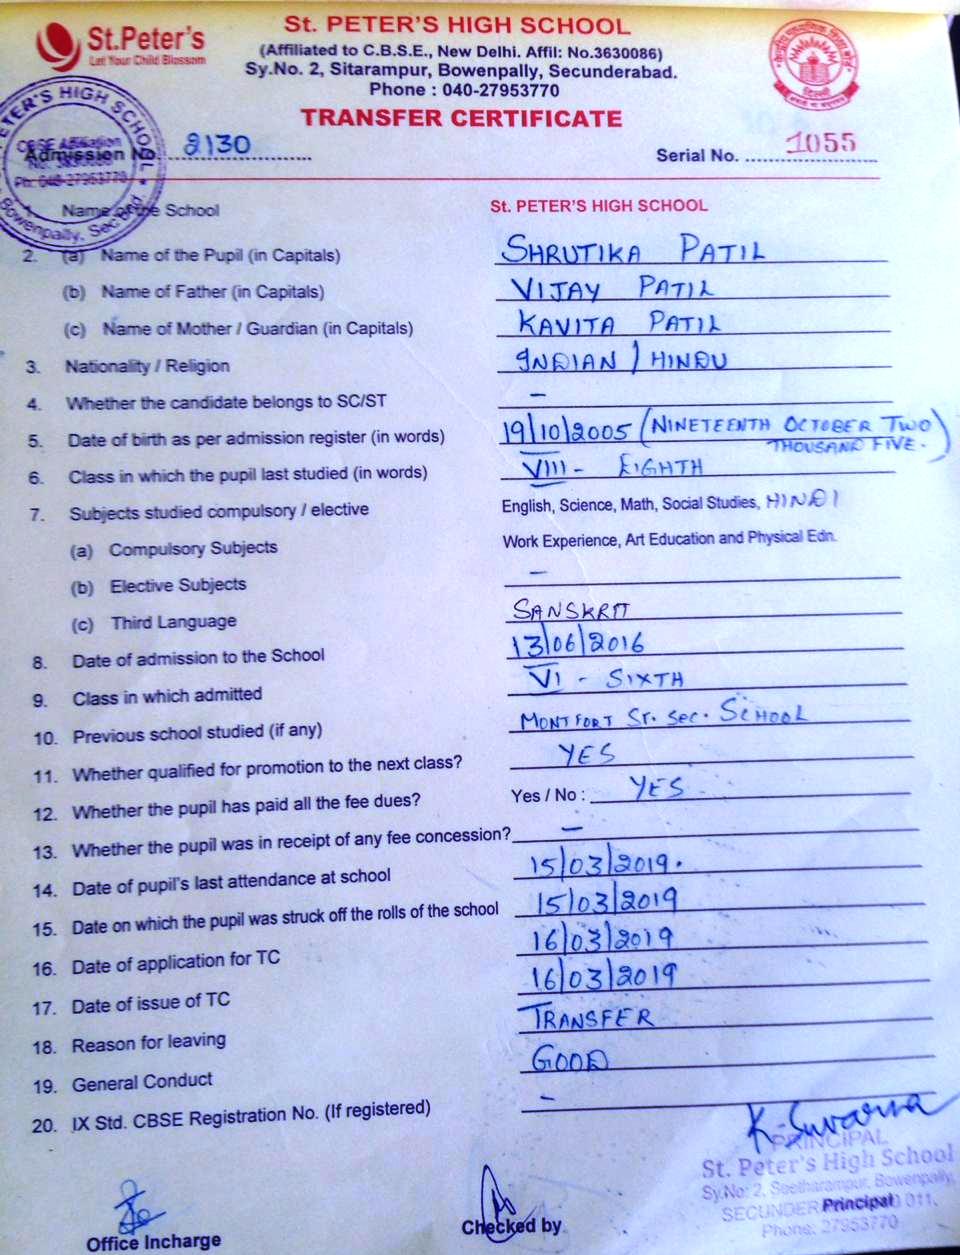 St.Peter's
Let Your Child Blossom
St. PETER'S HIGH SCHOOL
(Affiliated to C.B.S.E., New Delhi. Affil: No.3630086)
Sy.No. 2, Sitarampur, Bowenpally, Secunderabad.
Phone : 040-27953770
TRANSFER CERTIFICATE
PETER'S HIGH SCHOOL
CBSE Affiliation
Ph: 040-27953770
Bowenpally, Sec'bad.
Admission No. 2130
Serial No. 1055
1. Name of the School St. PETER'S HIGH SCHOOL
2. (a) Name of the Pupil (in Capitals) SHRUTIKA PATIL
(b) Name of Father (in Capitals) VIJAY PATIL
(c) Name of Mother / Guardian (in Capitals) KAVITA PATIL
3. Nationality / Religion INDIAN / HINDU
4. Whether the candidate belongs to SC/ST –
5. Date of birth as per admission register (in words) 19/10/2005 (NINETEENTH OCTOBER TWO
THOUSAND FIVE.)
6. Class in which the pupil last studied (in words) VIII - EIGHTH
7. Subjects studied compulsory / elective English, Science, Math, Social Studies, HINDI
(a) Compulsory Subjects Work Experience, Art Education and Physical Edn.
(b) Elective Subjects –
(c) Third Language SANSKRIT
8. Date of admission to the School 13/06/2016
9. Class in which admitted VI - SIXTH
10. Previous school studied (if any) MONTFORT Sr. Sec. SCHOOL
11. Whether qualified for promotion to the next class? YES
12. Whether the pupil has paid all the fee dues? Yes / No : YES
13. Whether the pupil was in receipt of any fee concession? –
14. Date of pupil's last attendance at school 15/03/2019.
15. Date on which the pupil was struck off the rolls of the school 15/03/2019
16. Date of application for TC 16/03/2019
17. Date of issue of TC 16/03/2019
18. Reason for leaving TRANSFER
19. General Conduct GOOD
20. IX Std. CBSE Registration No. (If registered) –
K. Suvarna
PRINCIPAL
St. Peter's High School
Sy.No: 2, Seetharampur, Bowenpally,
SECUNDER 011.
Phone: 27953770
Office Incharge
Checked by
Principal